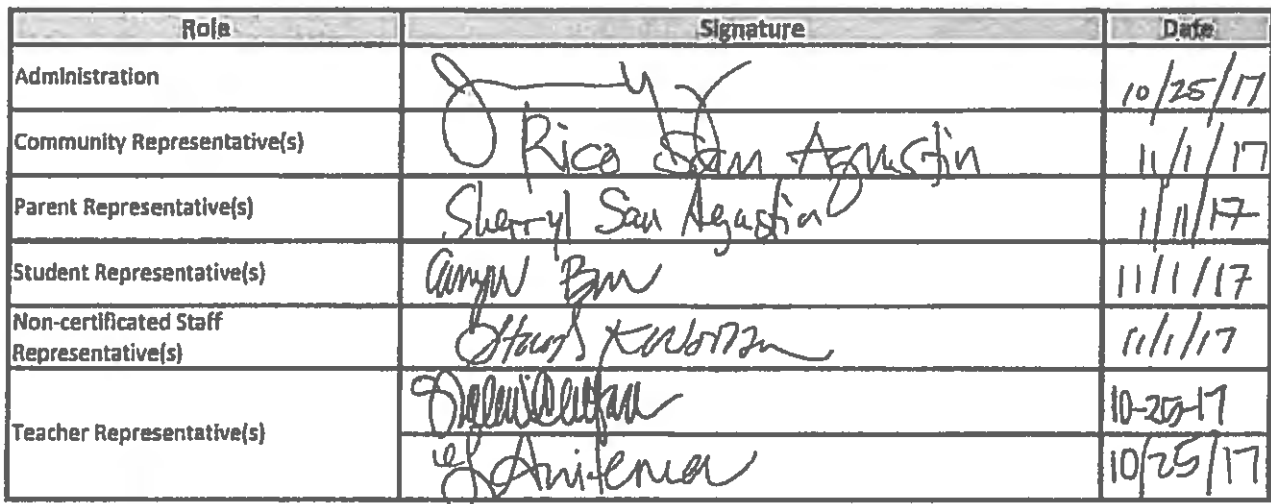 Role Signature Date
Administration 10/25/17
Community Representative(s) Rico San Agustin 11/1/17
Parent Representative(s) Sherryl San Agustin 1/11/17
Student Representative(s) 11/1/17
Non-certificated Staff
Representative(s) 11/1/17
Teacher Representative(s)
10-25-17
10/25/17